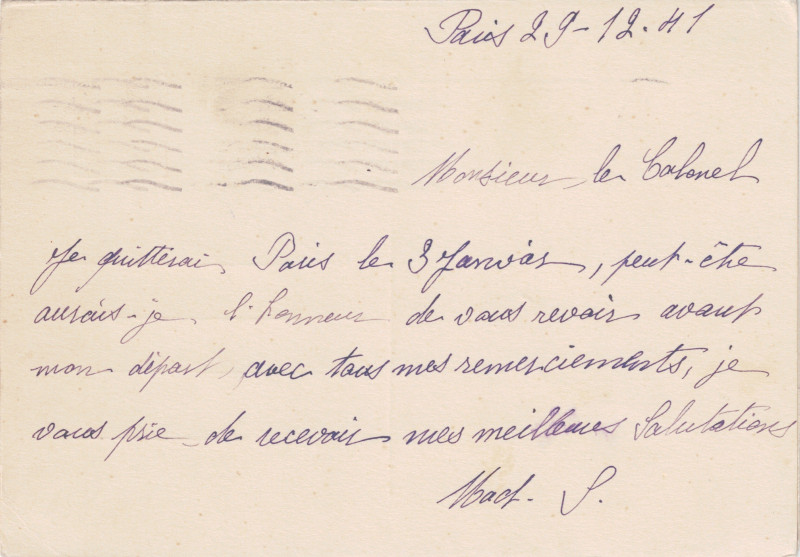 Paris 29-12-41
Monsieur le Colonel
Je quitterai Paris le 3 Janvier, peut-être
aurais-je l'honneur de vous revoir avant
mon départ, avec tous mes remerciements, je
vous prie de recevoir mes meilleures Salutations
Mad. S.